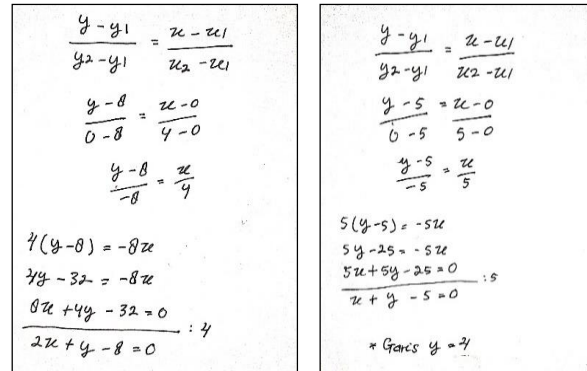 y - y1 / y2 - y1 = x - x1 / x2 - x1
y - 8 / 0 - 8 = x - 0 / 4 - 0
y - 8 / -8 = x / 4
4(y - 8) = -8x
4y - 32 = -8x
8x + 4y - 32 = 0 : 4
2x + y - 8 = 0
y - y1 / y2 - y1 = x - x1 / x2 - x1
y - 5 / 0 - 5 = x - 0 / 5 - 0
y - 5 / -5 = x / 5
5(y - 5) = -5x
5y - 25 = -5x
5x + 5y - 25 = 0 : 5
x + y - 5 = 0
* Garis y = 4